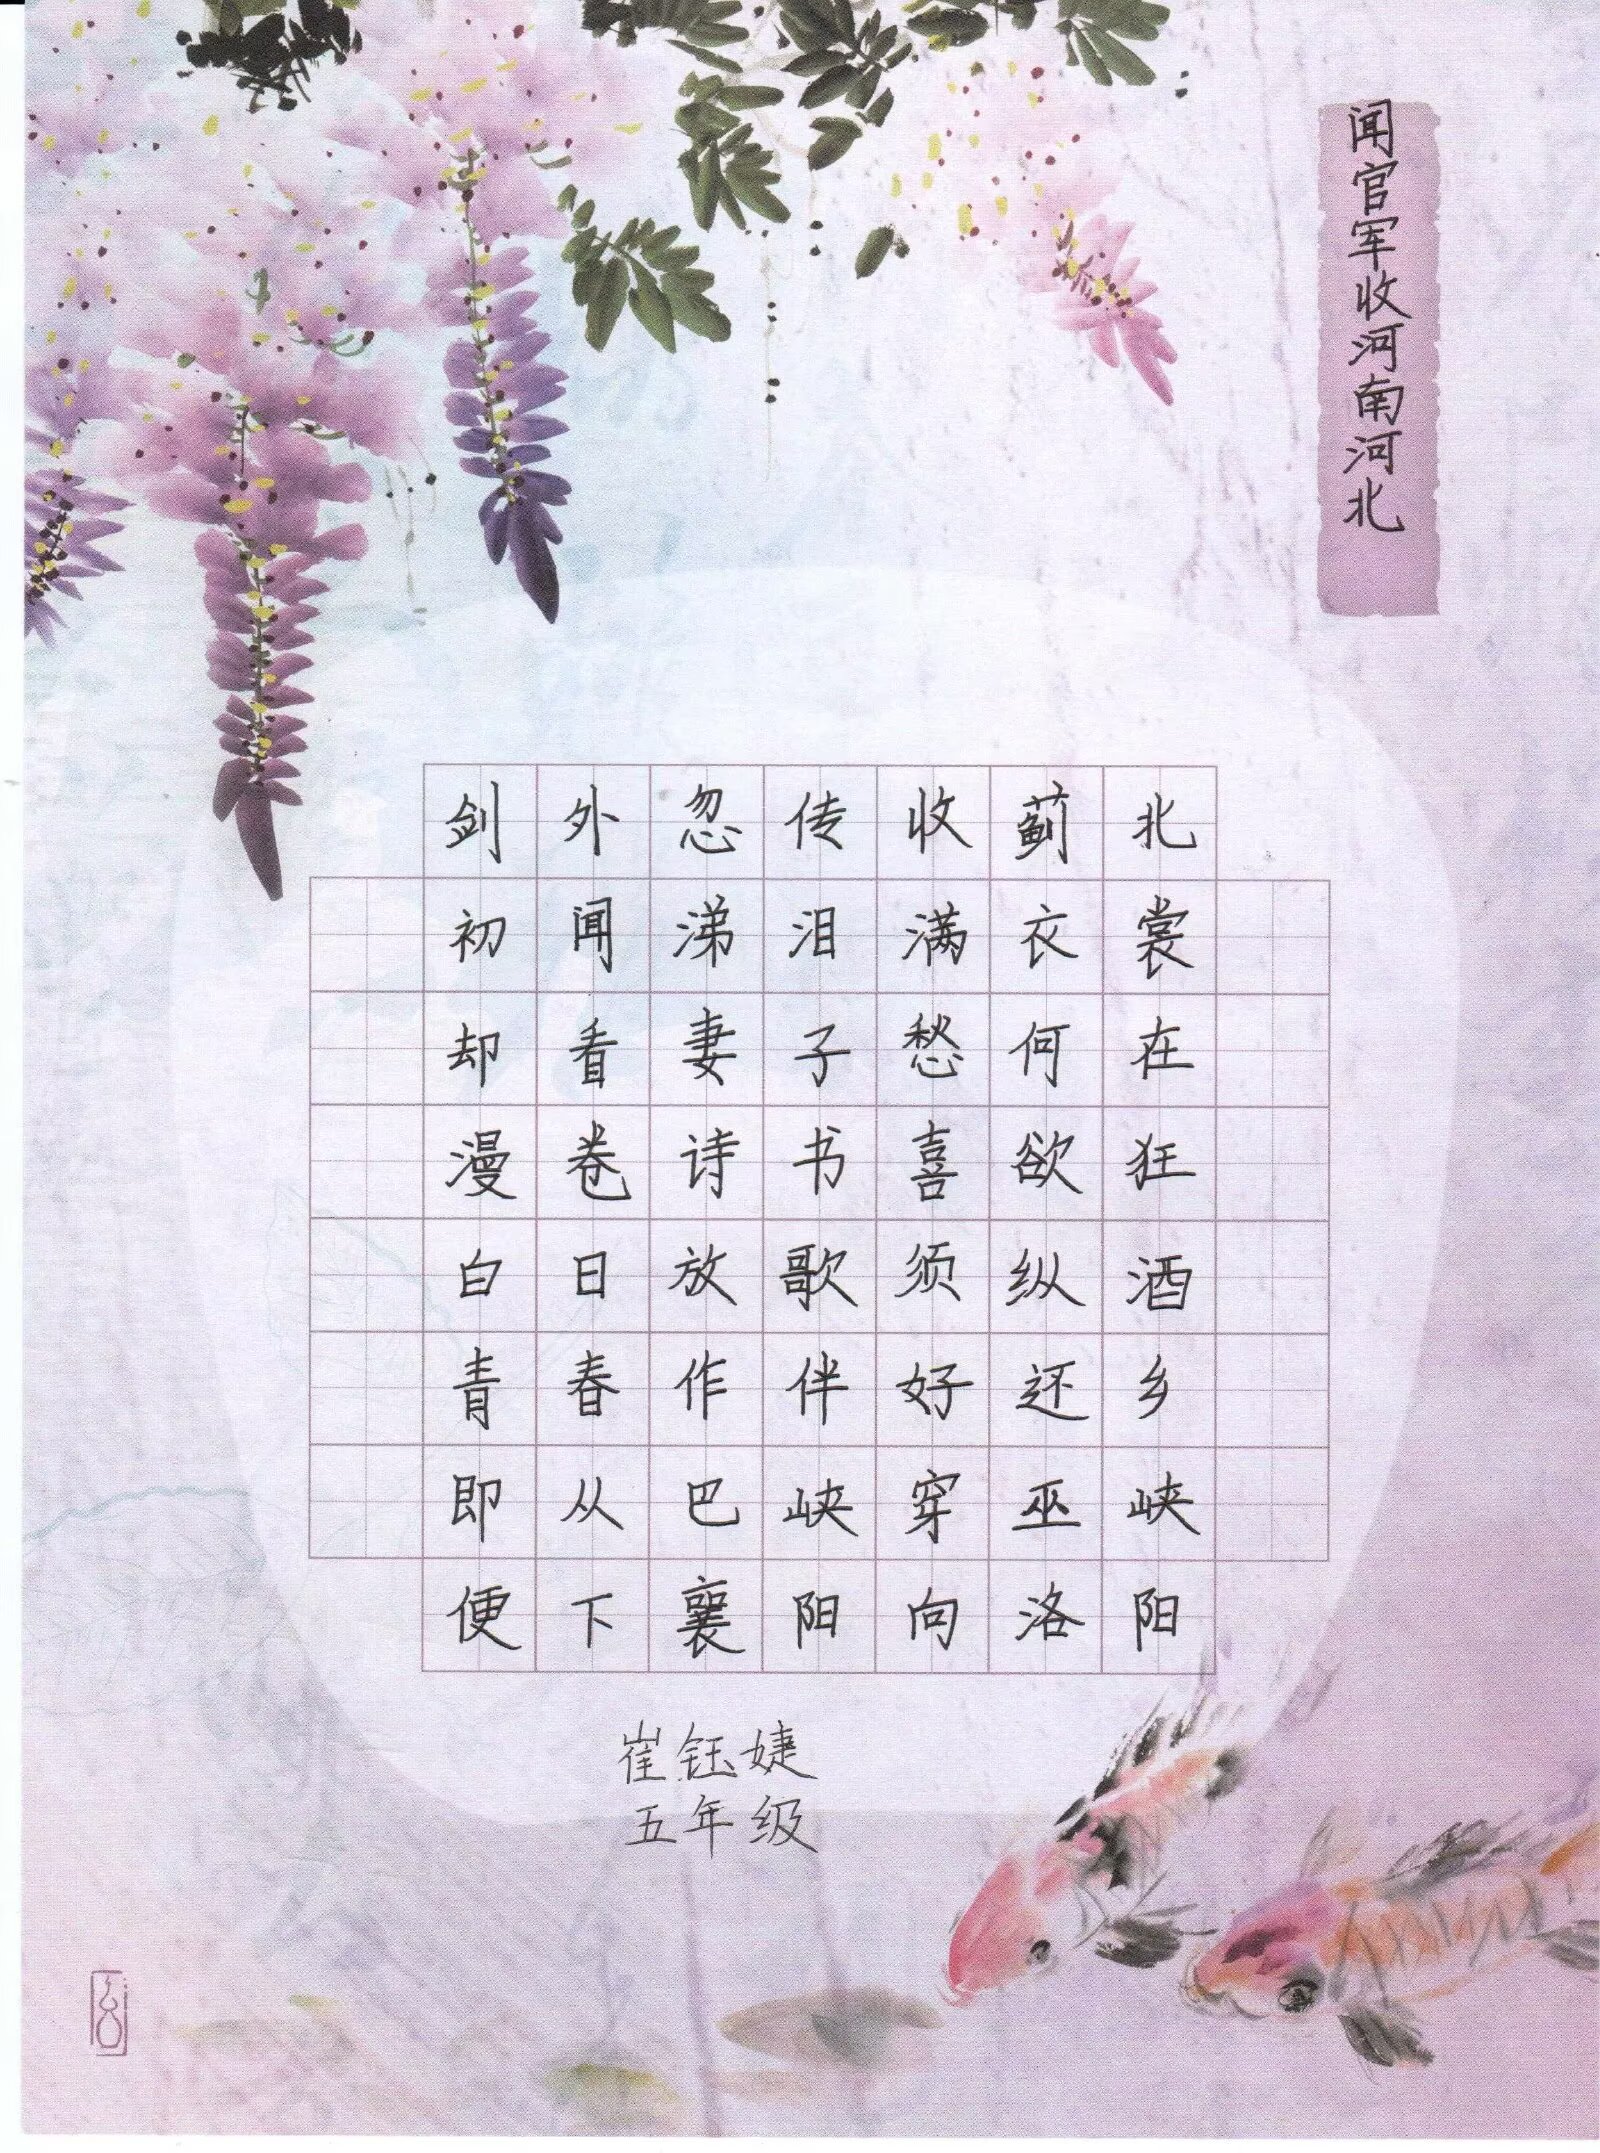 闻官军收河南河北
剑外忽传收蓟北
初闻涕泪满衣裳
却看妻子愁何在
漫卷诗书喜欲狂
白日放歌须纵酒
青春作伴好还乡
即从巴峡穿巫峡
便下襄阳向洛阳
崔钰婕
五年级